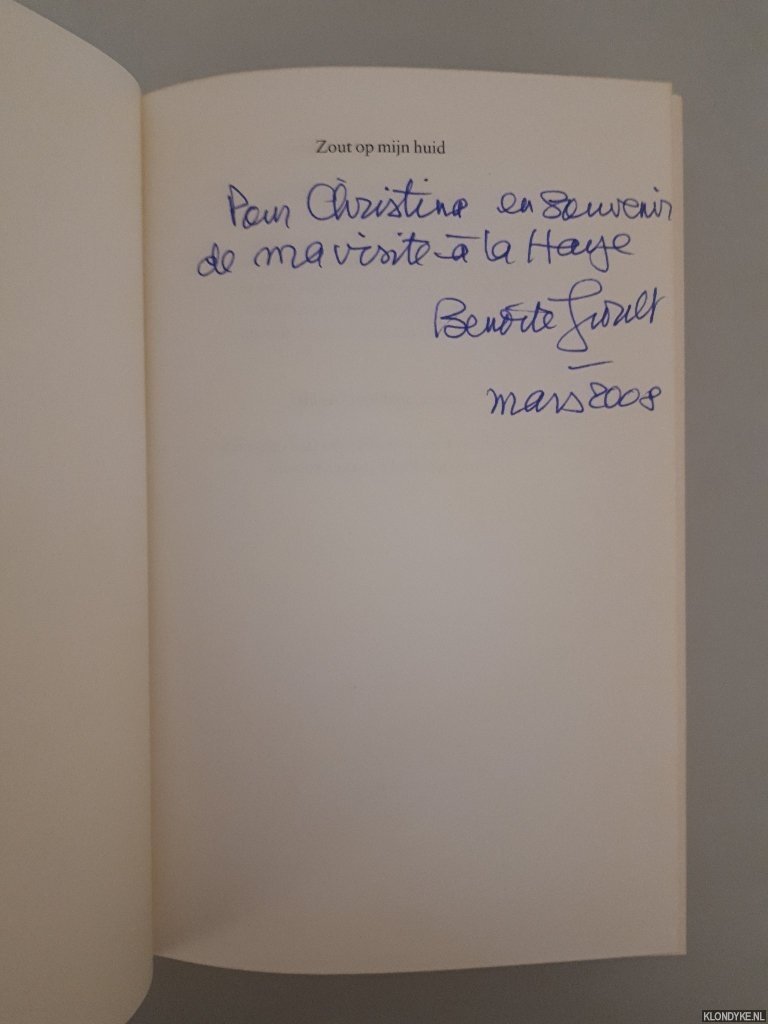 Zout op mijn huid
Pour Christine en souvenir
de ma visite à la Haye
Benoîte Groult
mars 2008
KLONDYKE.NL